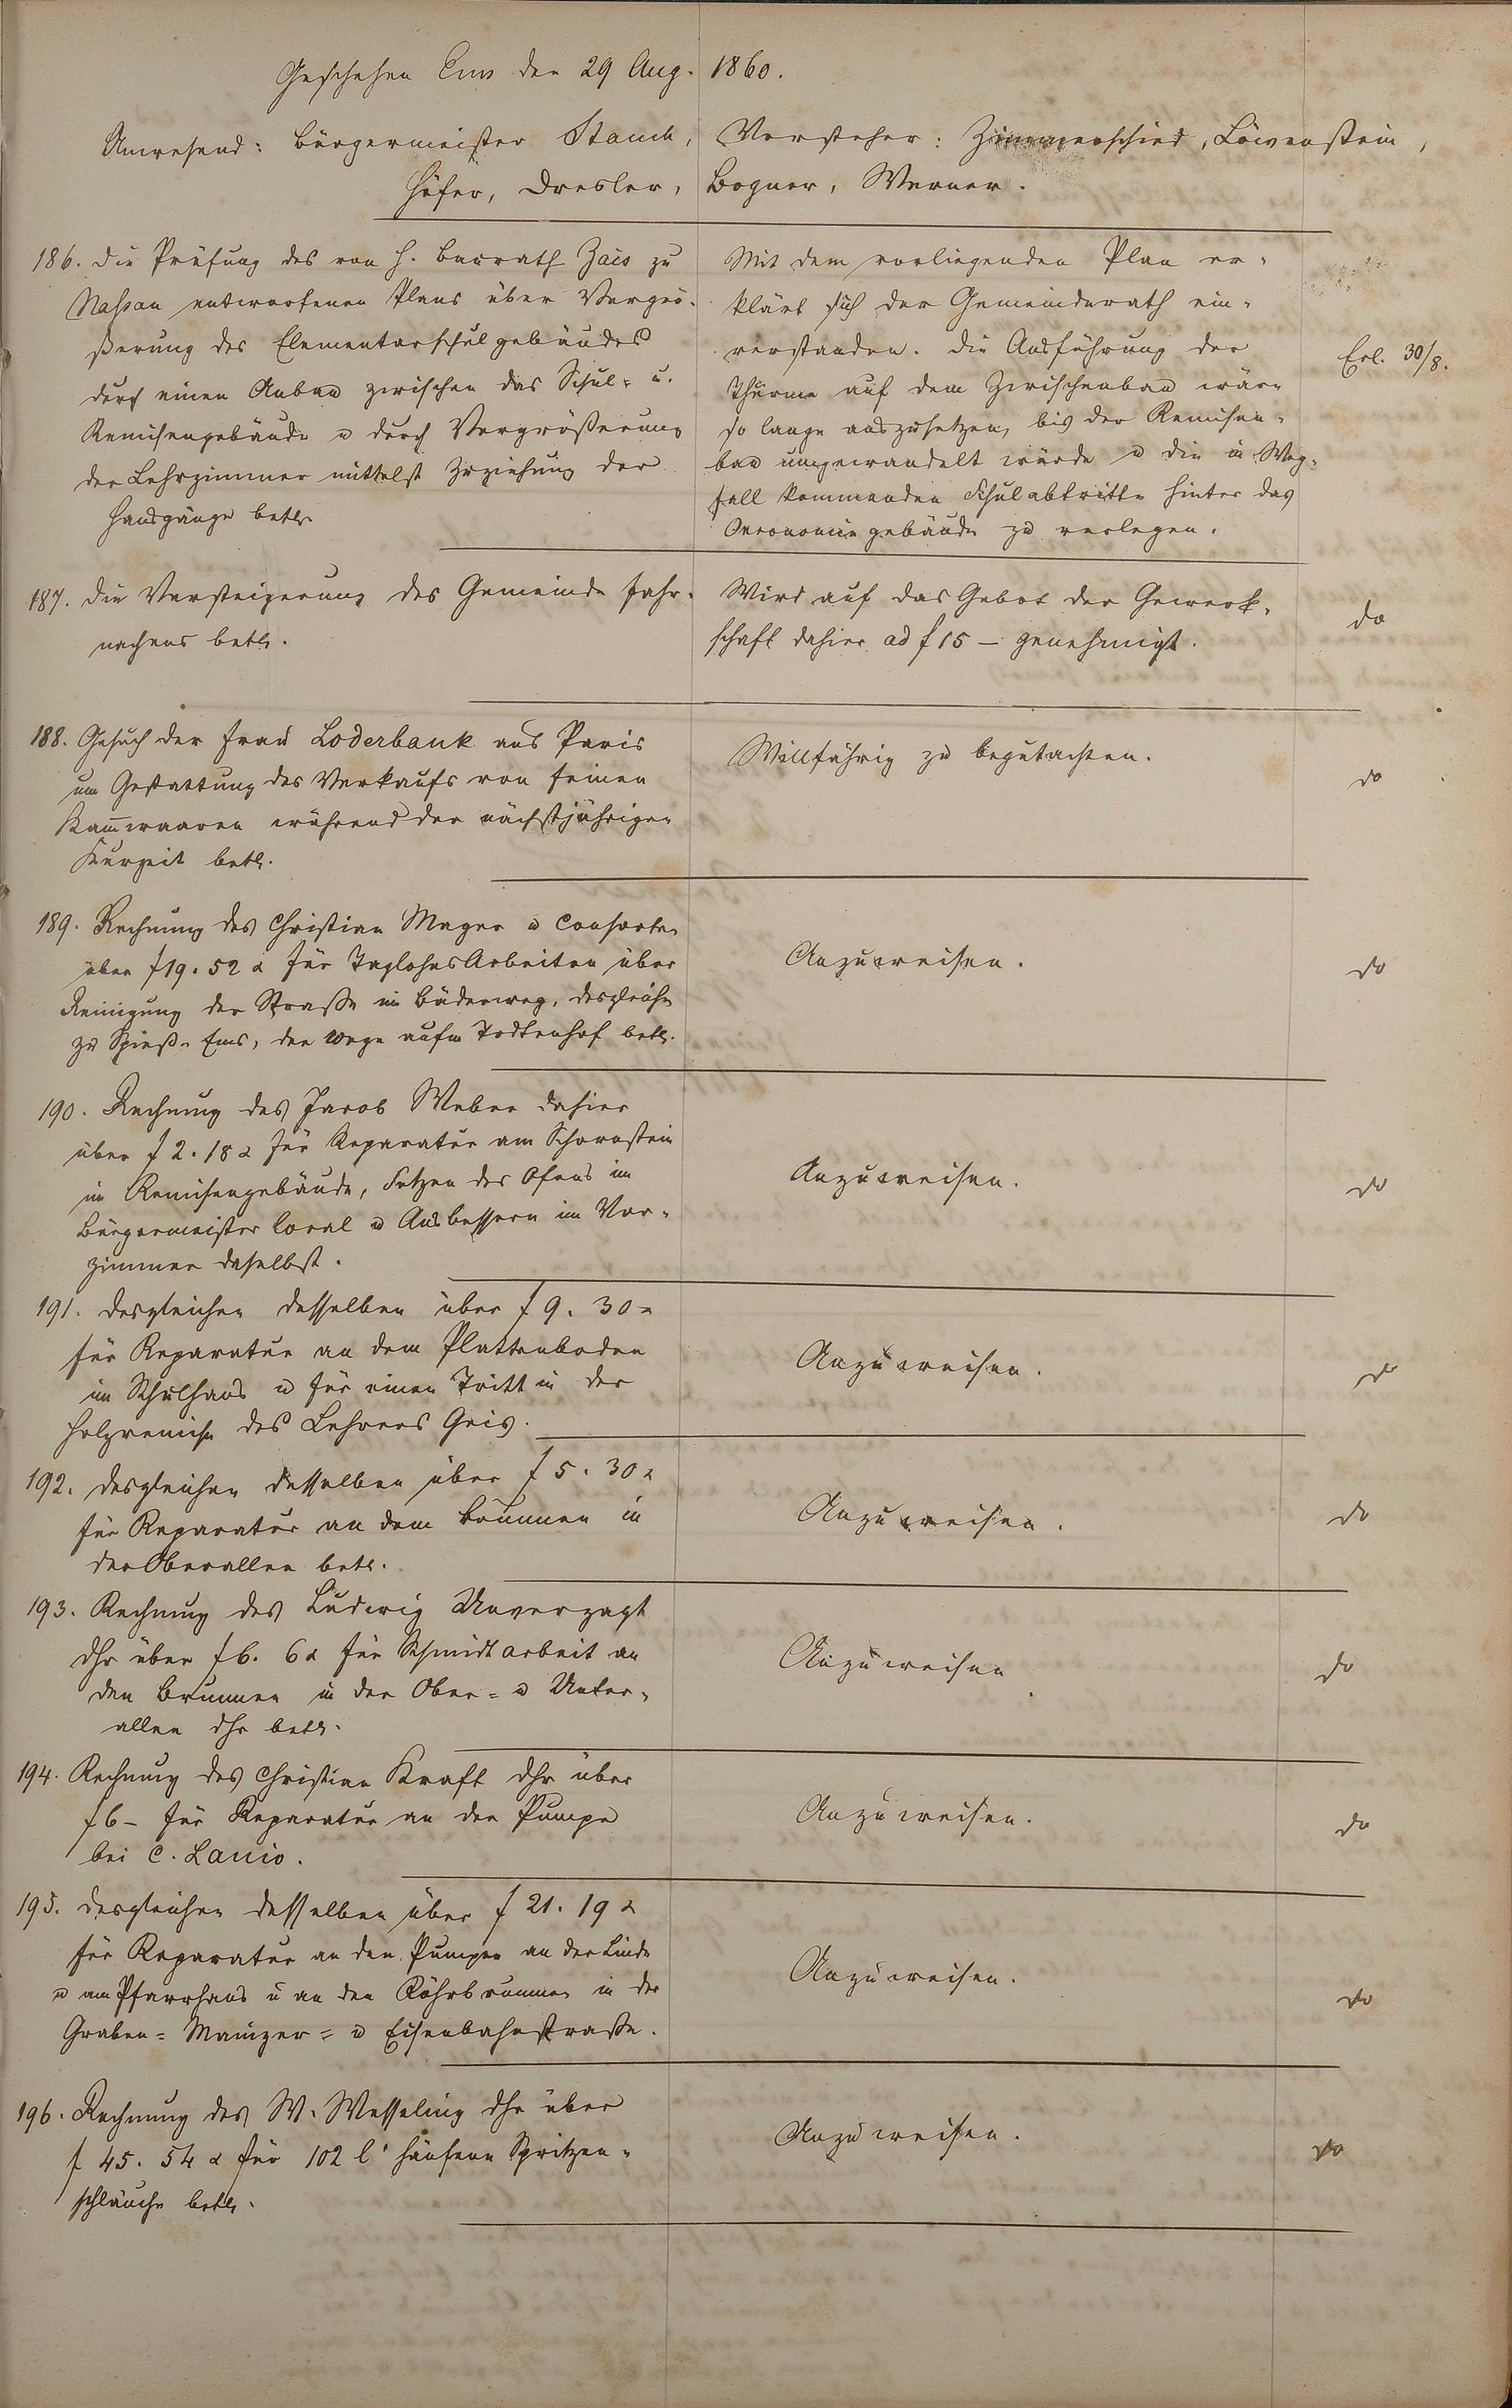 Geschehen Ems den 29 Aug. 1860.
Anwesend: Bürgermeister Stauch, Vorsteher: Zimmerschied, Löwenstein,
Höfer, Dresler, Bogner, Werner.
186. Die Prüfung des von H. Baurath Zais zu
Nassau entworfenen Plans über Vergrö-
ßerung des Elementarschulgebäudes
durch einen Anbau zwischen das Schul- u.
Remisengebäude u durch Vergrößerung
der Lehrzimmer mittelst Zuziehung der
Hausgänge betr.
Mit dem vorliegenden Plan er-
klärt sich der Gemeinderath ein-
verstanden. Die Ausführung der
Thürme auf dem Zwischenbau wäre
so lange auszusetzen, bis der Remisen-
bau umgewandelt würde u die in Weg-
fall kommenden Schulabtritte hinter das
Oeconomiegebäude zu verlegen.
Erl. 30/8.
187. Die Versteigerung des Gemeinde Fahr-
nachens betr.
Wird auf das Gebot der Gewerk-
schaft dahier ad f 15 — genehmigt.
do
188. Gesuch der Frau Loderbank aus Paris
um Gestattung des Verkaufs von feinen
Kam̄waaren während der nächstjährigen
Kurzeit betr.
Willfährig zu begutachten.
do
189. Rechnung des Christian Mager u Consorten
über f 19. 52 x für TaglohnsArbeiten über
Reinigung der Straße im Bäderweg, desgleichen
zu Spieß-Ems, der Wege aufm Todtenhof betr.
Anzuweisen.
do
190. Rechnung des Jacob Weber dahier
über f 2. 18 x für Reparatur am Schornstein
im Remisengebäude, Setzen des Ofens im
Bürgermeister local u Ausbessern im Vor-
zimmer daselbst.
Anzuweisen.
do
191. Desgleichen desselben über f 9. 30 x
für Reparatur an dem Plattenboden
im Schulhaus u für einen Tritt in der
Holzremise des Lehrers Geis.
Anzuweisen.
do
192. Desgleichen desselben über f 5. 30 x
für Reparatur an dem Brunnen in
der Oberallee betr.
Anzuweisen.
do
193. Rechnung des Ludwig Unverzagt
dhr über f 6. 6 x für Schmidtarbeit an
den Brunnen in der Ober- u Unter-
allee dhr betr.
Anzuweisen
do
194. Rechnung des Christian Kraft dhr über
f 6 — für Reparatur an der Pumpe
bei C. Lanio.
Anzuweisen.
do
195. Desgleichen desselben über f 21. 19 x
für Reparatur an den Pumpen an der Linde
u am Pfarrhaus u an den Röhrbrunnen in der
Graben- Mainzer- u Eisenbahnstraße.
Anzuweisen.
do
196. Rechnung des W. Wesseling dhr über
f 45. 54 x für 102 l' hänfene Spritzen-
schläuche betr.
Anzuweisen.
do